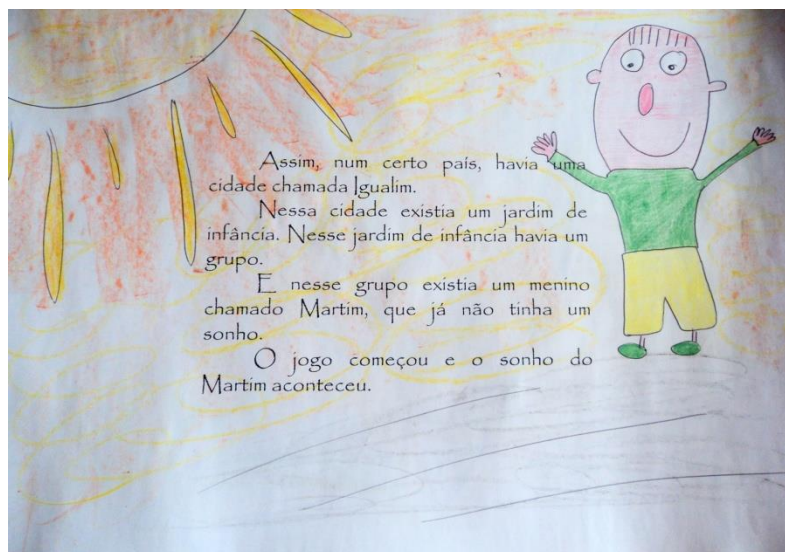 Assim, num certo país, havia uma
cidade chamada Igualim.
Nessa cidade existia um jardim de
infância. Nesse jardim de infância havia um
grupo.
E nesse grupo existia um menino
chamado Martim, que já não tinha um
sonho.
O jogo começou e o sonho do
Martim aconteceu.